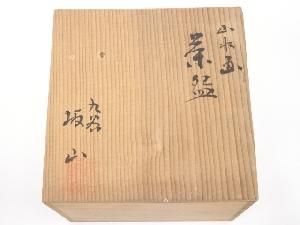 山水画
茶盌
九谷
坂山